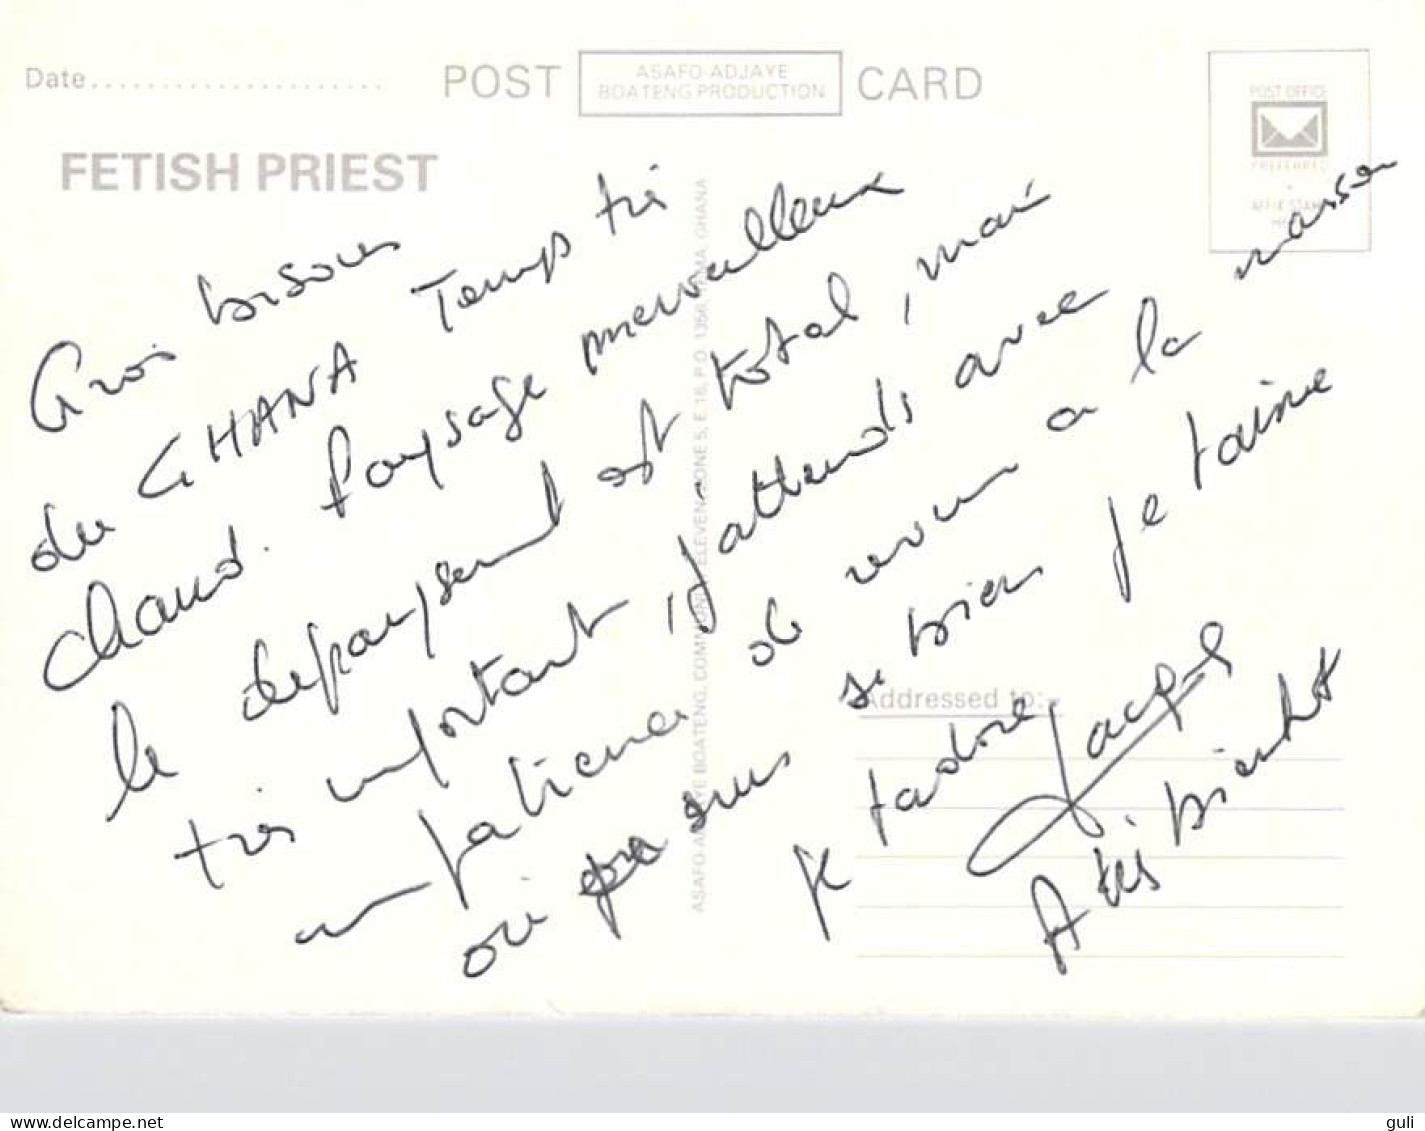 Date......................
POST
ASAFO-ADJAYE
BOATENG PRODUCTION
CARD
POST OFFICE
PREFERRED
AFFIX STAMP
FETISH PRIEST
ASAFO-ADJAYE BOATENG, COMMUNITY ELEVEN, ZONE 5, E 16, P.O. 1356, TEMA, GHANA
Addressed to:-
Gros bisous
du GHANA Temps très
chaud. Paysage merveilleux
le depaysement est total, mais
très important, j'attends avec
impatience de revenir a la maison
où je suis si bien je t'aime
je t'adore Jacques
A très bientôt
delcampe.net
guli